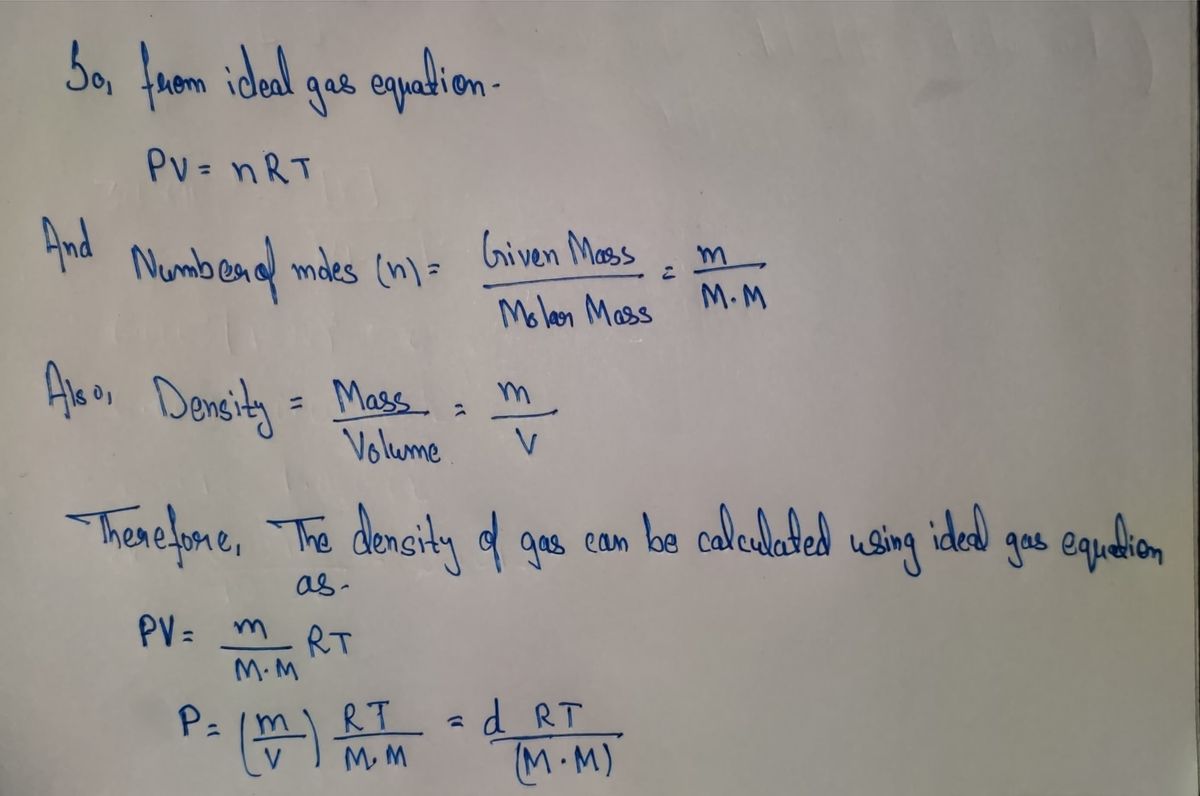 So, from ideal gas equation-
PV = nRT
And Number of moles (n) = Given Mass / Molar Mass = m / M.M
Also, Density = Mass / Volume = m / V
Therefore, The density of gas can be calculated using ideal gas equation
as-
PV = m / M.M RT
P = (m / V) RT / M.M = d RT / (M.M)